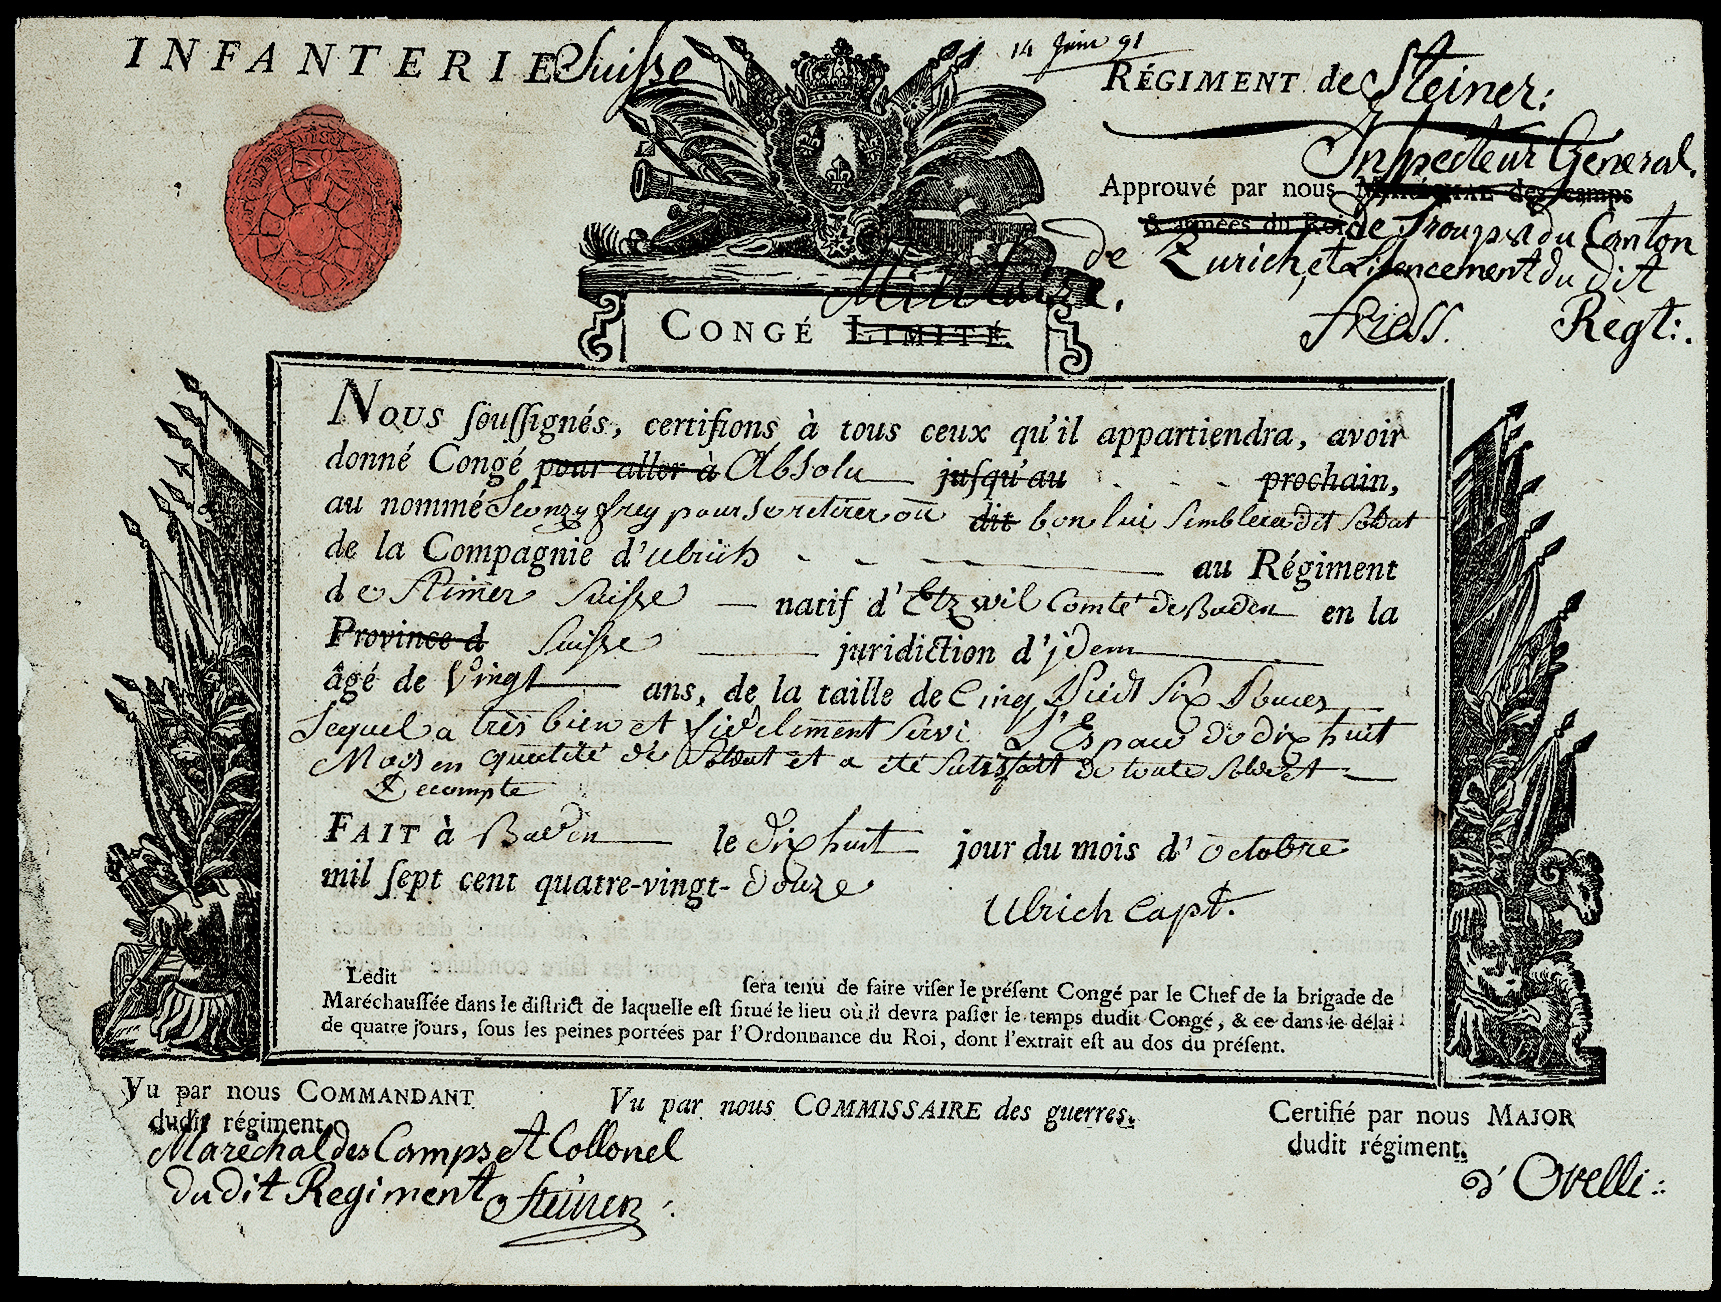 INFANTERIE Suisse
14 Juin 91
RÉGIMENT de Steiner:
Inspecteur General
Approuvé par nous MARÉCHAL des camps
& armées du Roi de Troupes du Canton
de Zurich, et Licencement du dit
Friess. Regt:.
Militaire.
CONGÉ LIMITÉ
Nous souſſignés, certifions à tous ceux qu'il appartiendra, avoir
donné Congé pour aller à Absolu juſqu'au prochain,
au nommé Frey pour Se retirer où dit bon lui Semblera dit Soldat
de la Compagnie d'Ulrich au Régiment
de Steiner Suisse natif d'Etzwil Comté de Baden en la
Province d Suisse juridiction d'jdem
âgé de Vingt ans, de la taille de Cinq Pieds Six Pouces
Lequel a très bien et fidelement Servi L'Espace de dix huit
Mois en qualité de Soldat et a été Satisfait de toute Solde et
Decompte
FAIT à Baden le dix huit jour du mois d'Octobre
mil ſept cent quatre-vingt-douze
Ulrich Capt.
Ledit ſera tenu de faire viſer le préſent Congé par le Chef de la brigade de
Maréchauſſée dans le diſtrict de laquelle eſt ſitué le lieu où il devra paſſer le temps dudit Congé, & ce dans le délai
de quatre jours, ſous les peines portées par l'Ordonnance du Roi, dont l'extrait eſt au dos du préſent.
Vu par nous COMMANDANT
dudit régiment.
Maréchal des Camps et Collonel
du dit Regiment Steiner
Vu par nous COMMISSAIRE des guerres.
Certifié par nous MAJOR
dudit régiment.
d'Orelli: